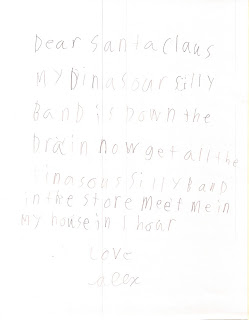 Dear Santa Claus
MY Dinasour Silly
BanD is Down the
Drain now get all the
Dinasous SillY BanD
in the store meet me in
My house in 1 hour
Love
alex